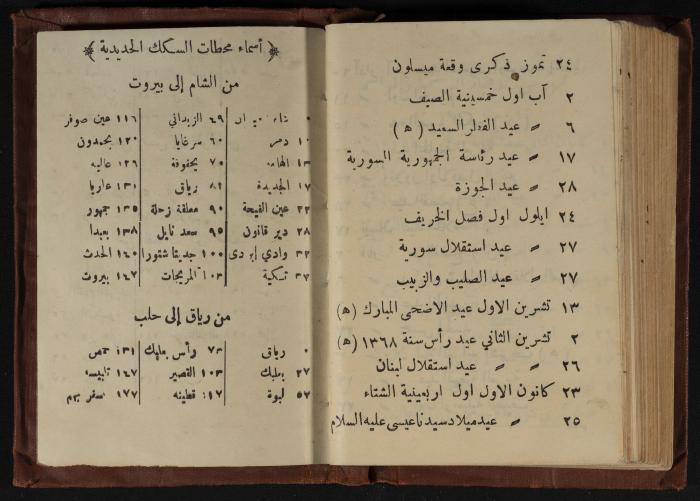 ٢٤ تموز ذكرى وقعة ميسلون
٢ آب اول خمسينية الصيف
٦ » عيد الفطر السعيد ( ه )
١٧ » عيد رئاسة الجمهورية السورية
٢٨ » عيد الجوزة
٢٤ ايلول اول فصل الخريف
٢٧ » عيد استقلال سورية
٢٧ » عيد الصليب والزبيب
١٣ تشرين الاول عيد الاضحى المبارك ( ه )
٢ تشرين الثاني عيد رأس سنة ١٣٦٨ ( ه )
٢٦ » » عيد استقلال لبنان
٢٣ كانون الاول اول اربعينية الشتاء
٢٥ » عيد ميلاد سيدنا عيسى عليه السلام
أسماء محطات السكك الحديدية
من الشام إلى بيروت
٠ ٤٩ الزبداني ١١٦ عين صوفر
١٠ دمر ٦٠ سرغايا ١٢٠ بحمدون
١٣ الهامه ٧٠ يحفوفة ١٢٦ عاليه
١٧ الجديدة ٨٢ رياق ١٣١ عاريا
٢٢ عين الفيجة ٩٠ معلقة زحلة ١٣٥ جمهور
٢٨ دير قانون ٩٥ سعد نايل ١٣٨ بعبدا
٣٢ وادي بردى ١٠٠ جديتا شتورا ١٤٠ الحدث
٣٧ تكية ١٠٣ المريجات ١٤٧ بيروت
من رياق إلى حلب
٠ رياق ٧٣ رأس بعلبك ١٣١ حمص
٢٧ بعلبك ١٠٣ القصير ١٤٧ تلبيسه
٥٧ لبوة قطينه ١٧٧